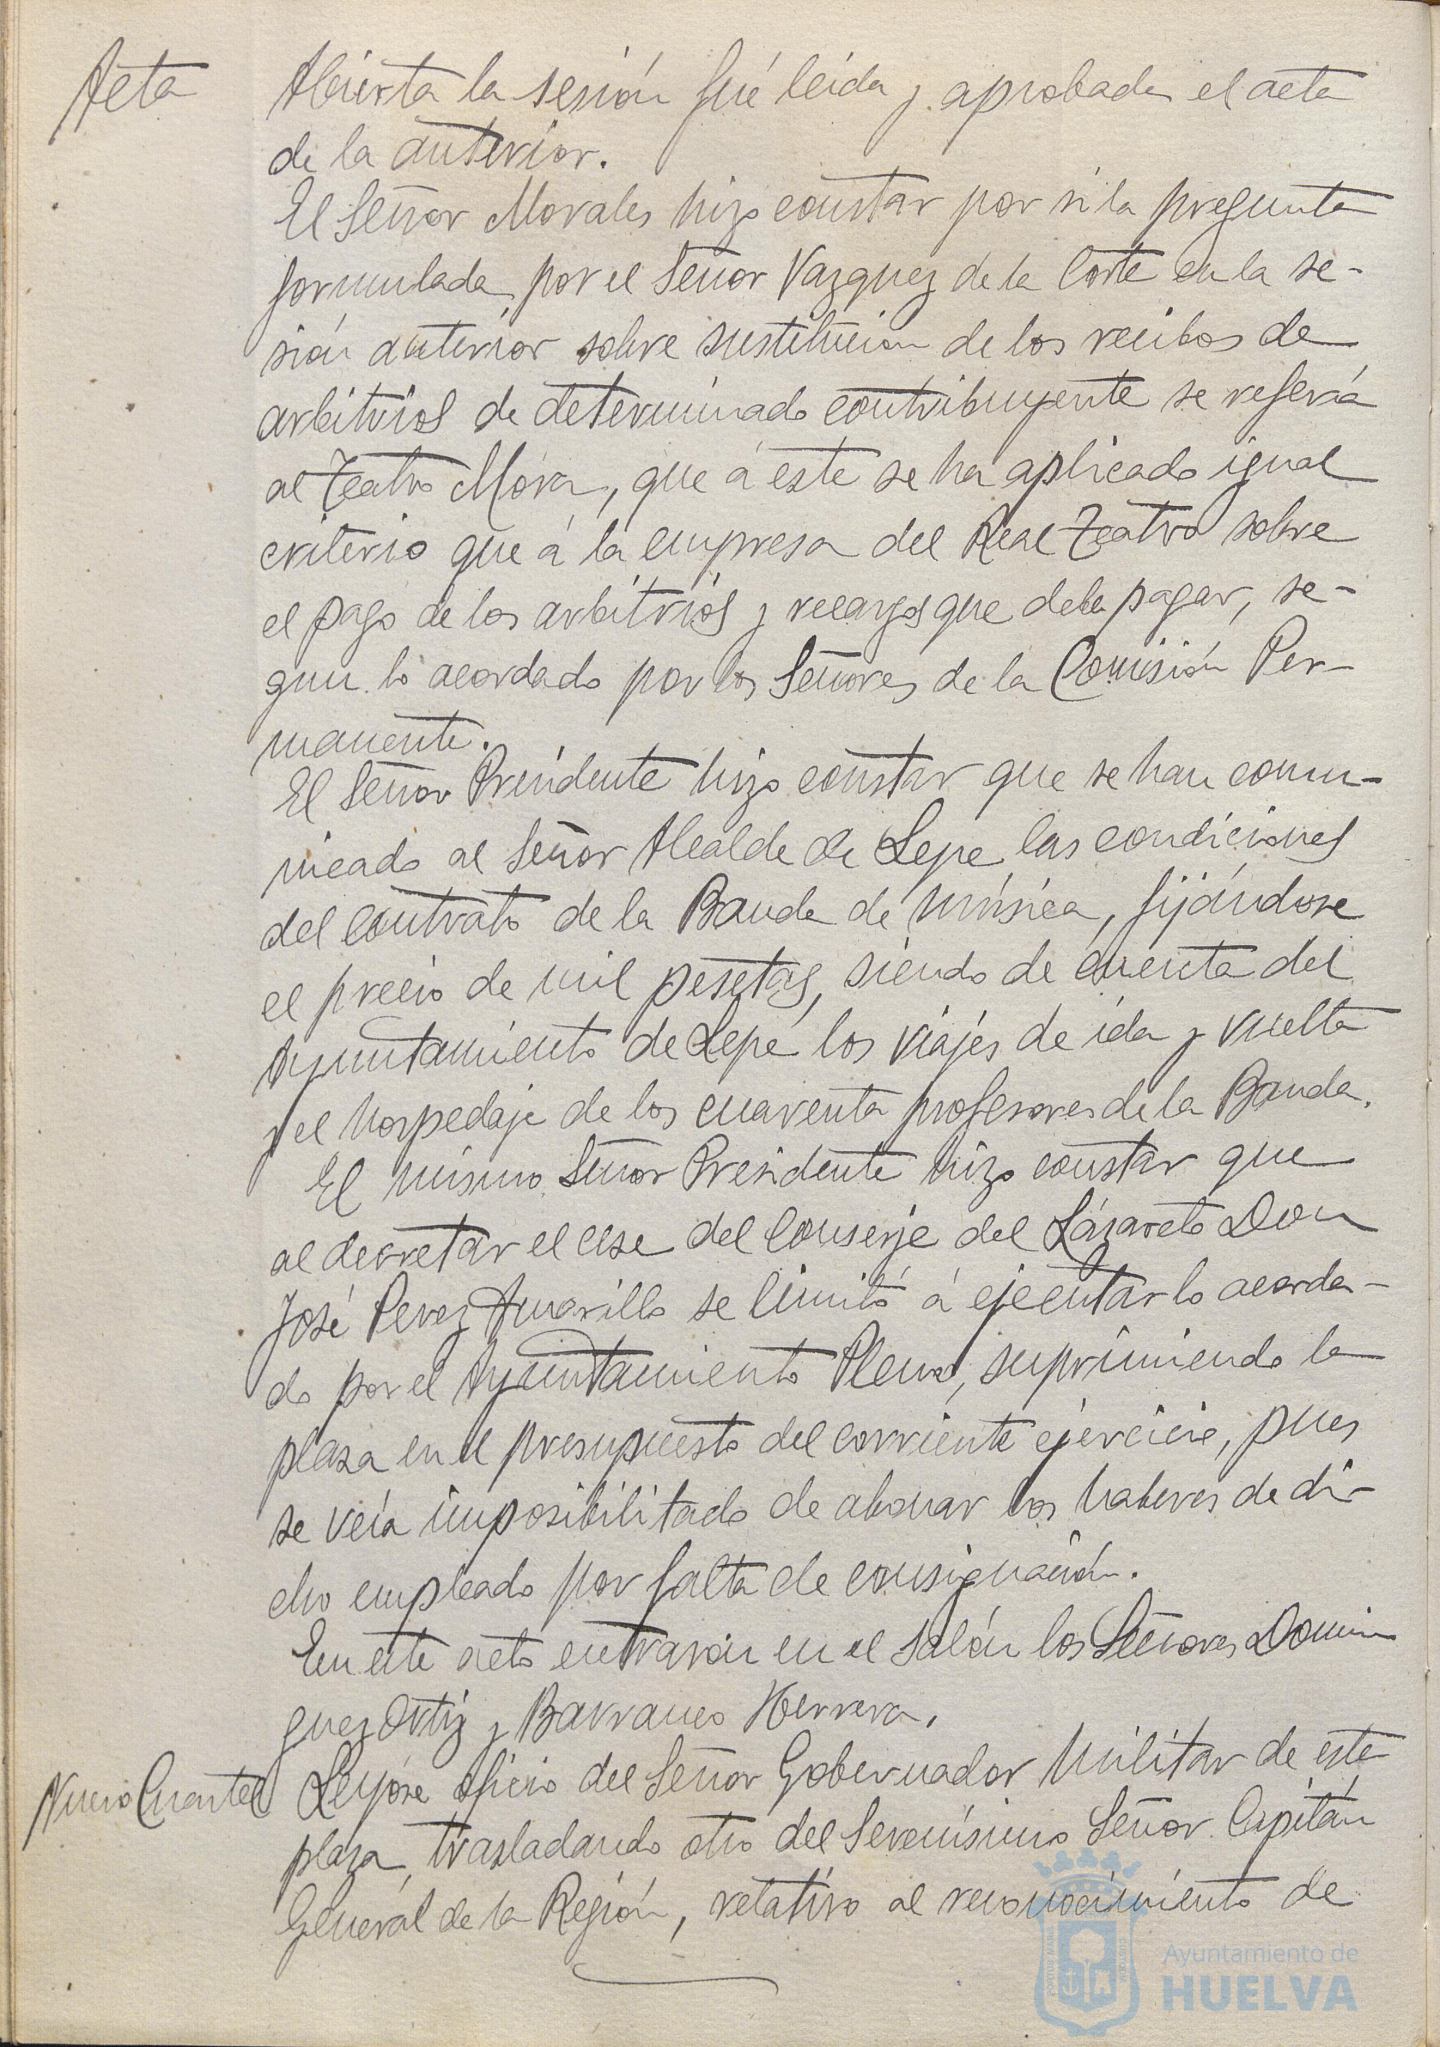 Acta
Abierta la sesión fué leida y aprobada el acta
de la anterior.
El Señor Morales hizo constar por si la pregunta
formulada por el Señor Vazquez de la Corte en la se-
sión anterior sobre sustitución de los recibos de
arbitrios de determinado contribuyente se refería
al Teatro Mora, que á este se ha aplicado igual
criterio que á la empresa del Real Teatro sobre
el pago de los arbitrios y recargos que deba pagar, se-
gun lo acordado por los Señores de la Comisión Per-
manente.
El Señor Presidente hizo constar que se han comu-
nicado al Señor Alcalde de Lepe las condiciones
del contrato de la Banda de música, fijándose
el precio de mil pesetas, siendo de cuenta del
Ayuntamiento de Lepe los viajes de ida y vuelta
y el hospedaje de los cuarenta profesores de la Banda.
El mismo Señor Presidente hizo constar que
al decretar el cese del Conserje del Lázareto Don
José Perez Amarillo se limitó á ejecutar lo acorda-
do por el Ayuntamiento Pleno, suprimiendo la
plaza en el presupuesto del corriente ejercicio, pues
se veía imposibilitado de abonar los haberes de di-
cho empleado por falta de consignación.
En este acto entrarón en el salón los Señores Domin
guez Ortiz y Barranco Herrera.
Nuevo Cuartel
Leyóse oficio del Señor Gobernador Militar de este
plaza, trasladando otro del Serenísimo Señor Capitán
General de la Región, relativo al reconocimiento de
Ayuntamiento de
HUELVA